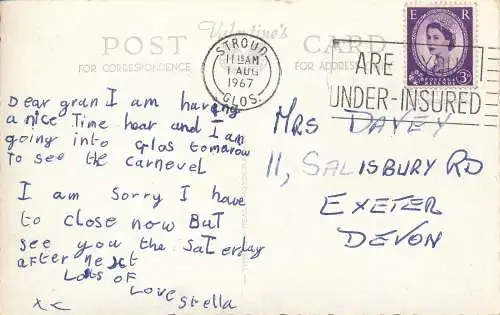 Valentine's
POST CARD
FOR CORRESPONDENCE FOR ADDRESS
STROUD
11 15AM
1 AUG
1967
GLOS.
ARE YOU
UNDER-INSURED
E R
3D
Dear gran I am having
a nice Time hear and I am
going into glos tomarow
To see the carnevel
I am sorry I have
to close now But
see you the SaTerday
after next
Lots of
Love Stella
Mrs DAVEY
11, SALISBURY RD
EXETER
DEVON